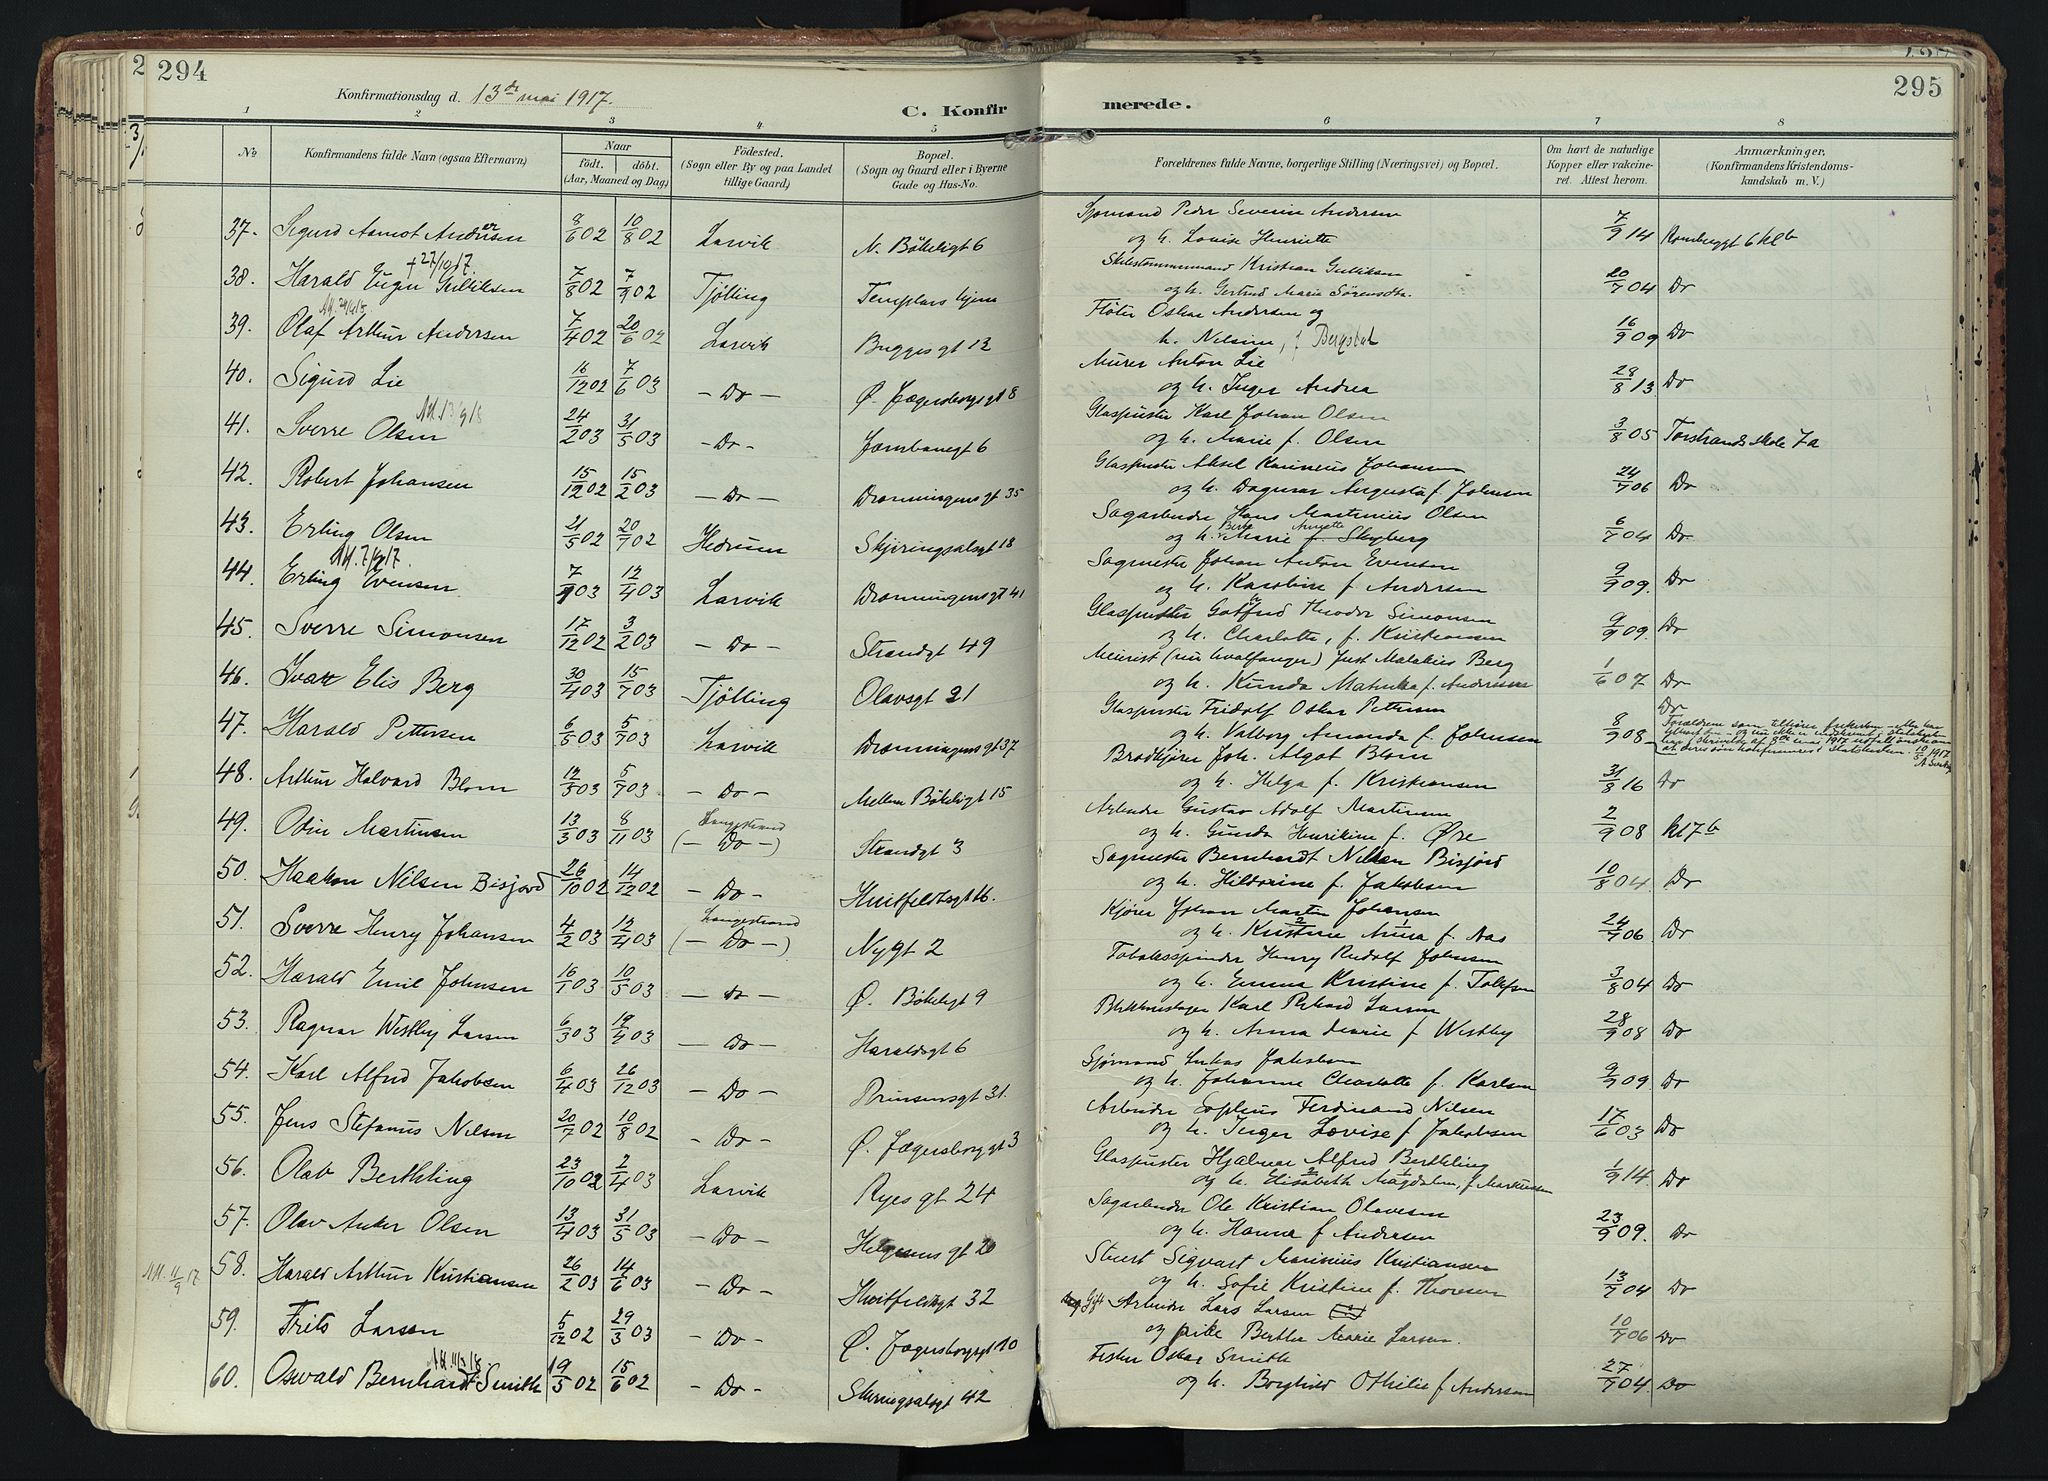 294
Konfirmationsdag d. 13de mai 1917.
C. Konfir
1 2 3 4 5
No
Konfirmandens fulde Navn (ogsaa Efternavn)
Naar
født. døbt.
(Aar, Maaned og Dag)
Födested.
(Sogn eller By og paa Landet
tillige Gaard)
Bopæl.
(Sogn og Gaard eller i Byerne
Gade og Hus-No.
37. Sigurd Aamot Andersen 8/6 02 10/8 02 Larvik N. Bökeligt 6
† 27/10 17.
38. Harald Eugen Gulliksen 7/8 02 7/9 02 Tjölling Templars hjem
39. Olaf Arthur Andersen 7/4 02 20/6 02 Larvik Bugges gt 12
40. Sigurd Lie 16/12 02 7/6 03 - Do - Ø. Jægersborgsgt 8
41. Sverre Olsen 24/2 03 31/5 03 - Do - Jernbanegt 6
42. Robert Johansen 15/12 02 15/2 03 - Do - Dronningensgt 35
43. Erling Olsen 21/5 02 20/7 02 Hedrum Skjiringsalsgt 18
44. Erling Evensen 7/1 03 12/4 03 Larvik Dronningensgt 41
45. Sverre Simonsen 17/12 02 3/2 03 - Do - Strandgt 49
46. Ivar Elis Berg 30/4 03 15/7 03 Tjölling Olavsgt 21
47. Harald Pettersen 6/5 03 5/7 03 Larvik Dronningensgt 37
48. Arthur Halvard Blom 12/5 03 5/7 03 - Do - Mellem Bökeligt 15
49. Odin Martinsen 13/3 03 8/11 03 Langestrand (- Do -) Strandgt 3
50. Haakon Nilsen Bisjord 26/10 02 14/12 02 - Do - Huitfeldtsgt 16.
51. Sverre Henry Johansen 4/2 03 12/4 03 Langestrand (- Do -) Nygt 2
52. Harald Emil Johnsen 16/1 03 10/5 03 - Do - Ø. Bökeligt 9
53. Ragnar Westby Larsen 6/3 03 19/4 03 - Do - Haraldsgt 6
54. Karl Alfred Jakobsen 6/4 03 26/12 03 - Do - Prinsensgt 31.
55. Jens Stefanus Nilsen 20/7 02 10/8 02 - Do - Ø. Jægersborggt 3
56. Olav Berthling 23/10 02 2/4 03 Larvik Ryes gt 24
57. Olav Anker Olsen 13/4 03 31/5 03 - Do - Helgesens gt 20
58. Harald Arthur Kristiansen 26/2 03 14/6 03 - Do - Huitfeldtsgt 32
59. Frits Larsen 5/12 02 29/3 03 - Do - Ø. Jægersborgsgt 10
60. Oswald Bernhardt Smith 19/5 02 15/6 02 - Do - Skiringsalsgt 42
295
merede.
6 7 8
Forældrenes fulde Navne, borgerlige Stilling (Næringsvei) og Bopæl.
Om havt de naturlige
Kopper eller vakcine-
ret. Attest herom.
Anmærkninger,
(Konfirmandens Kristendoms-
kundskab m. V.)
Sjømand Peder Severin Andersen
og h. Lovise Henriette 7/9 14
Kristian Gulliksen
og h. Gertrud Marie Sörensdtr. 20/7 04 Do
Fløter Oskar Andersen og
h. Nilsine, f Bergsdal 16/9 09 Do
Murer Anton Lie
og h. Inger Andrea 28/8 13. Do
Glaspuster Karl Johan Olsen
og h. Marie f. Olsen 3/8 05 Torstrand skole 7a
Glaspuster Aksel Johansen
og h. Dagmar Augusta f. Johnsen 24/7 06 Do
Sagarbeider Hans Martinius Olsen
og h. Marie f. Skyberg 6/7 04 Do
Sagmester Johan Anton Evensen
og h. Karoline f Andersen 9/9 09. Do
Glaspuster Gotfred Theodor Simonsen
og h. Charlotte, f. Kristiansen 9/9 09. Do
Meierist (nu hvalfanger) Just Malakias Berg
og h. Kunda f. Andersen 1/6 07 Do
Glaspuster Fridolf Oskar Pettersen Do
og h. Valborg Amanda f. Johnsen 8/9 08
Brødkjører Joh. Algot Blom
og h. Helga f. Kristiansen 31/8 16 Do
Arbeider Gustav Adolf Martinsen
og h. Gunda Henrikine f. Øre 2/9 08 kl 7b
Sagmester Bernhardt Nilsen Bisjord
og h. Hildorine f. Jakobsen 10/8 04 Do
Kjører Johan Martin Johansen
og h. Kristine Anna f. Aas 24/7 06 Do
Tobaksspinder Henry Rudolf Johnsen
og h. Emma Kristine f. Tollefsen 3/8 04 Do
Blikkenslager Karl Rikard Larsen
og h. Anna Marie f Westby 28/9 08 Do
Sjømand Lukas Jakobsen
og h. Johanne Charlotte f. Karlsen 9/9 09 Do
Arbeider Sophus Ferdinand Nilsen
og h. Inger Lovise f Jakobsen 17/6 03 Do
Glaspuster Hjalmar Alfred Berthling
og h. Elisabeth Magdalene, f Markussen 1/9 14. Do
Sagarbeider Ole Kristian Olavesen
og h. Hanna f Andersen 23/9 09. Do
Stuert Sigvart Marinius Kristiansen
og h. Sofie Kristine f Thoresen 13/7 04 Do
Gift Arbeider Lars Larsen
og pike Berthe Marie Larsen. 10/7 06 Do
Fisker Oskar Smith
og h. Borghild Othilie f Andersen 27/7 04. Do